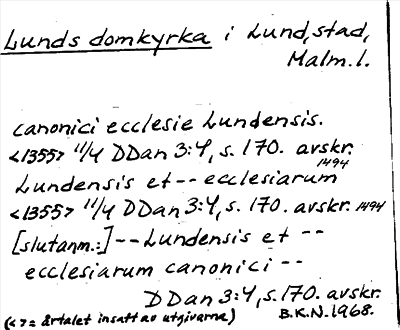 Lunds domkyrka i Lund, stad,
Malm. l.
canonici ecclesie Lundensis.
<1355> 11/4 DDan 3:4, s. 170. avskr.
1494
Lundensis et -- ecclesiarum
<1355> 11/4 DDan 3:4, s. 170. avskr. 1494
[slutanm.:] -- Lundensis et --
ecclesiarum canonici --
DDan 3:4, s. 170. avskr.
(<> = årtalet insatt av utgivarna) B.K.N. 1968.